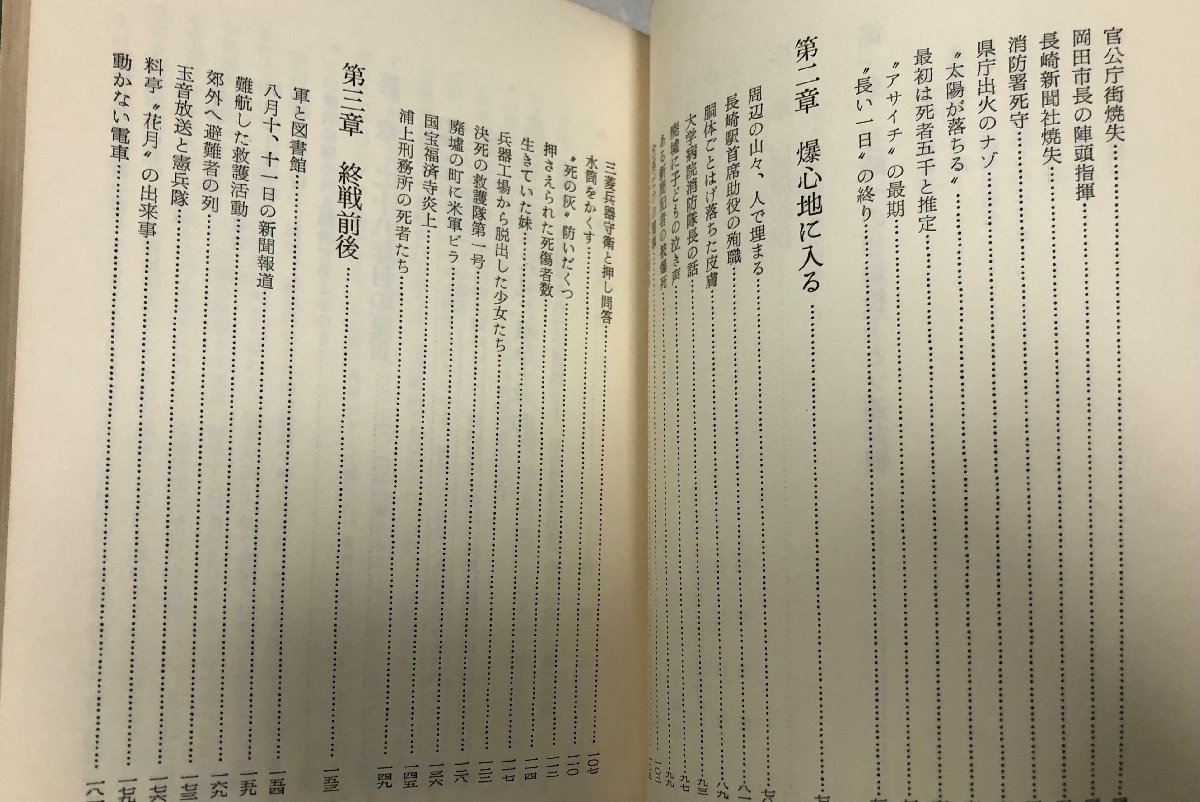 官公庁街焼失
岡田市長の陣頭指揮
長崎新聞社焼失
消防署死守
県庁出火のナゾ
〝太陽が落ちる〟
最初は死者五千と推定
〝アサイチ〟の最期
〝長い一日〟の終り
第二章 爆心地に入る
周辺の山々、人で埋まる
長崎駅首席助役の殉職
胴体ごとはげ落ちた皮膚
大学病院消防隊長の話 九七
廃墟に子どもの泣き声 九九
ある新聞記者の被爆死
三菱兵器守衛と押し問答 一〇七
水筒をかくす
〝死の灰〟防いだくつ 一一〇
押さえられた死傷者数 一一二
生きていた妹 一一四
兵器工場から脱出した少女たち 一一七
決死の救護隊第一号
廃墟の町に米軍ビラ
国宝福済寺炎上 一三六
浦上刑務所の死者たち 一四五
一四九
第三章 終戦前後 一五三
軍と図書館 一五四
八月十、十一日の新聞報道 一五九
難航した救護活動
郊外へ避難者の列 一六九
玉音放送と憲兵隊 一七三
料亭〝花月〟の出来事 一七六
動かない電車 一七九